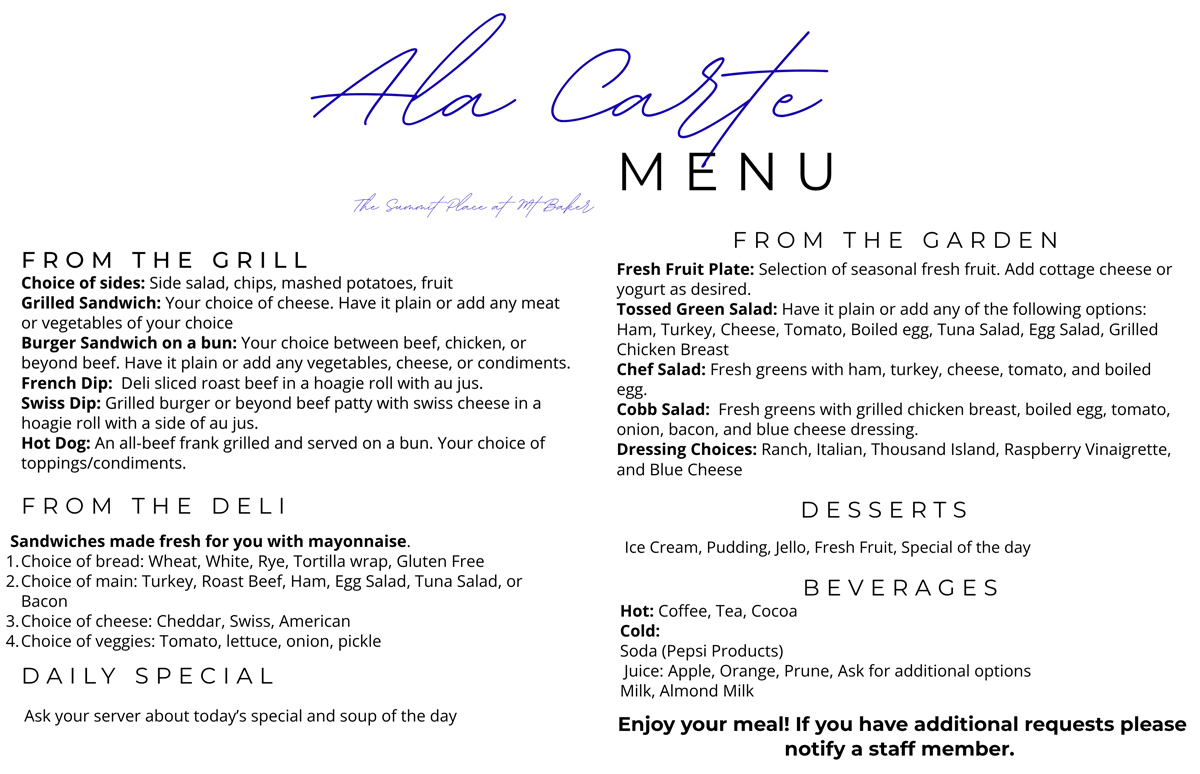 Ala Carte
MENU
The Summit Place at Mt Baker
FROM THE GRILL
Choice of sides: Side salad, chips, mashed potatoes, fruit
Grilled Sandwich: Your choice of cheese. Have it plain or add any meat
or vegetables of your choice
Burger Sandwich on a bun: Your choice between beef, chicken, or
beyond beef. Have it plain or add any vegetables, cheese, or condiments.
French Dip: Deli sliced roast beef in a hoagie roll with au jus.
Swiss Dip: Grilled burger or beyond beef patty with swiss cheese in a
hoagie roll with a side of au jus.
Hot Dog: An all-beef frank grilled and served on a bun. Your choice of
toppings/condiments.
FROM THE DELI
Sandwiches made fresh for you with mayonnaise.
1. Choice of bread: Wheat, White, Rye, Tortilla wrap, Gluten Free
2. Choice of main: Turkey, Roast Beef, Ham, Egg Salad, Tuna Salad, or
Bacon
3. Choice of cheese: Cheddar, Swiss, American
4. Choice of veggies: Tomato, lettuce, onion, pickle
DAILY SPECIAL
Ask your server about today's special and soup of the day
FROM THE GARDEN
Fresh Fruit Plate: Selection of seasonal fresh fruit. Add cottage cheese or
yogurt as desired.
Tossed Green Salad: Have it plain or add any of the following options:
Ham, Turkey, Cheese, Tomato, Boiled egg, Tuna Salad, Egg Salad, Grilled
Chicken Breast
Chef Salad: Fresh greens with ham, turkey, cheese, tomato, and boiled
egg.
Cobb Salad: Fresh greens with grilled chicken breast, boiled egg, tomato,
onion, bacon, and blue cheese dressing.
Dressing Choices: Ranch, Italian, Thousand Island, Raspberry Vinaigrette,
and Blue Cheese
DESSERTS
Ice Cream, Pudding, Jello, Fresh Fruit, Special of the day
BEVERAGES
Hot: Coffee, Tea, Cocoa
Cold:
Soda (Pepsi Products)
Juice: Apple, Orange, Prune, Ask for additional options
Milk, Almond Milk
Enjoy your meal! If you have additional requests please
notify a staff member.